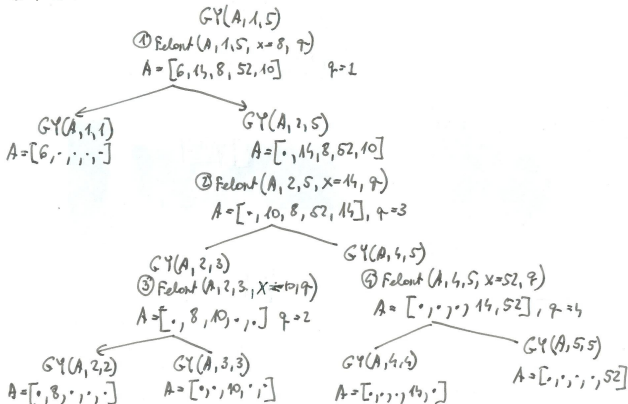 GY(A,1,5)
① Feloszt(A,1,5, x=8, q)
A=[6,14,8,52,10] q=1
GY(A,1,1)
A=[6,·,·,·,·]
GY(A,2,5)
A=[·,14,8,52,10]
② Feloszt(A,2,5,x=14, q)
A=[·,10,8,52,14], q=3
GY(A,2,3)
③ Feloszt(A,2,3, x=10,q)
A=[·,8,10,·,·] q=2
GY(A,4,5)
④ Feloszt(A,4,5, x=52, q)
A=[·,·,·,14,52], q=4
GY(A,2,2)
A=[·,8,·,·,·]
GY(A,3,3)
A=[·,·,10,·,·]
GY(A,4,4)
A=[·,·,·,14,·]
GY(A,5,5)
A=[·,·,·,·,52]